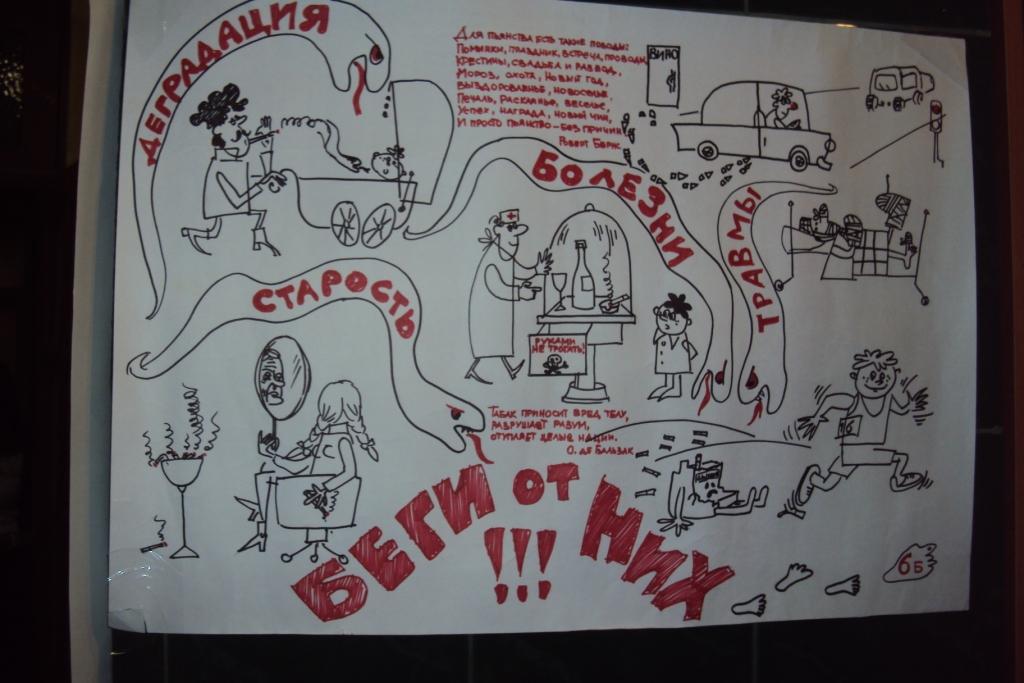 ДЕГРАДАЦИЯ
Для пьянства есть такие поводы:
Поминки, праздник, встреча, проводы,
Крестины, свадьба и развод,
Мороз, охота, Новый год,
Выздоровленье, новоселье,
Печаль, раскаянье, веселье,
Успех, награда, новый чин,
И просто пьянство – без причин
Роберт Бернс
ВИНО
БОЛЕЗНИ
ТРАВМЫ
СТАРОСТЬ
РУКАМИ
НЕ ТРОГАТЬ!
Табак приносит вред телу,
разрушает разум,
отупляет целые нации.
О. де Бальзак
БЕГИ ОТ НИХ
!!!
6Б